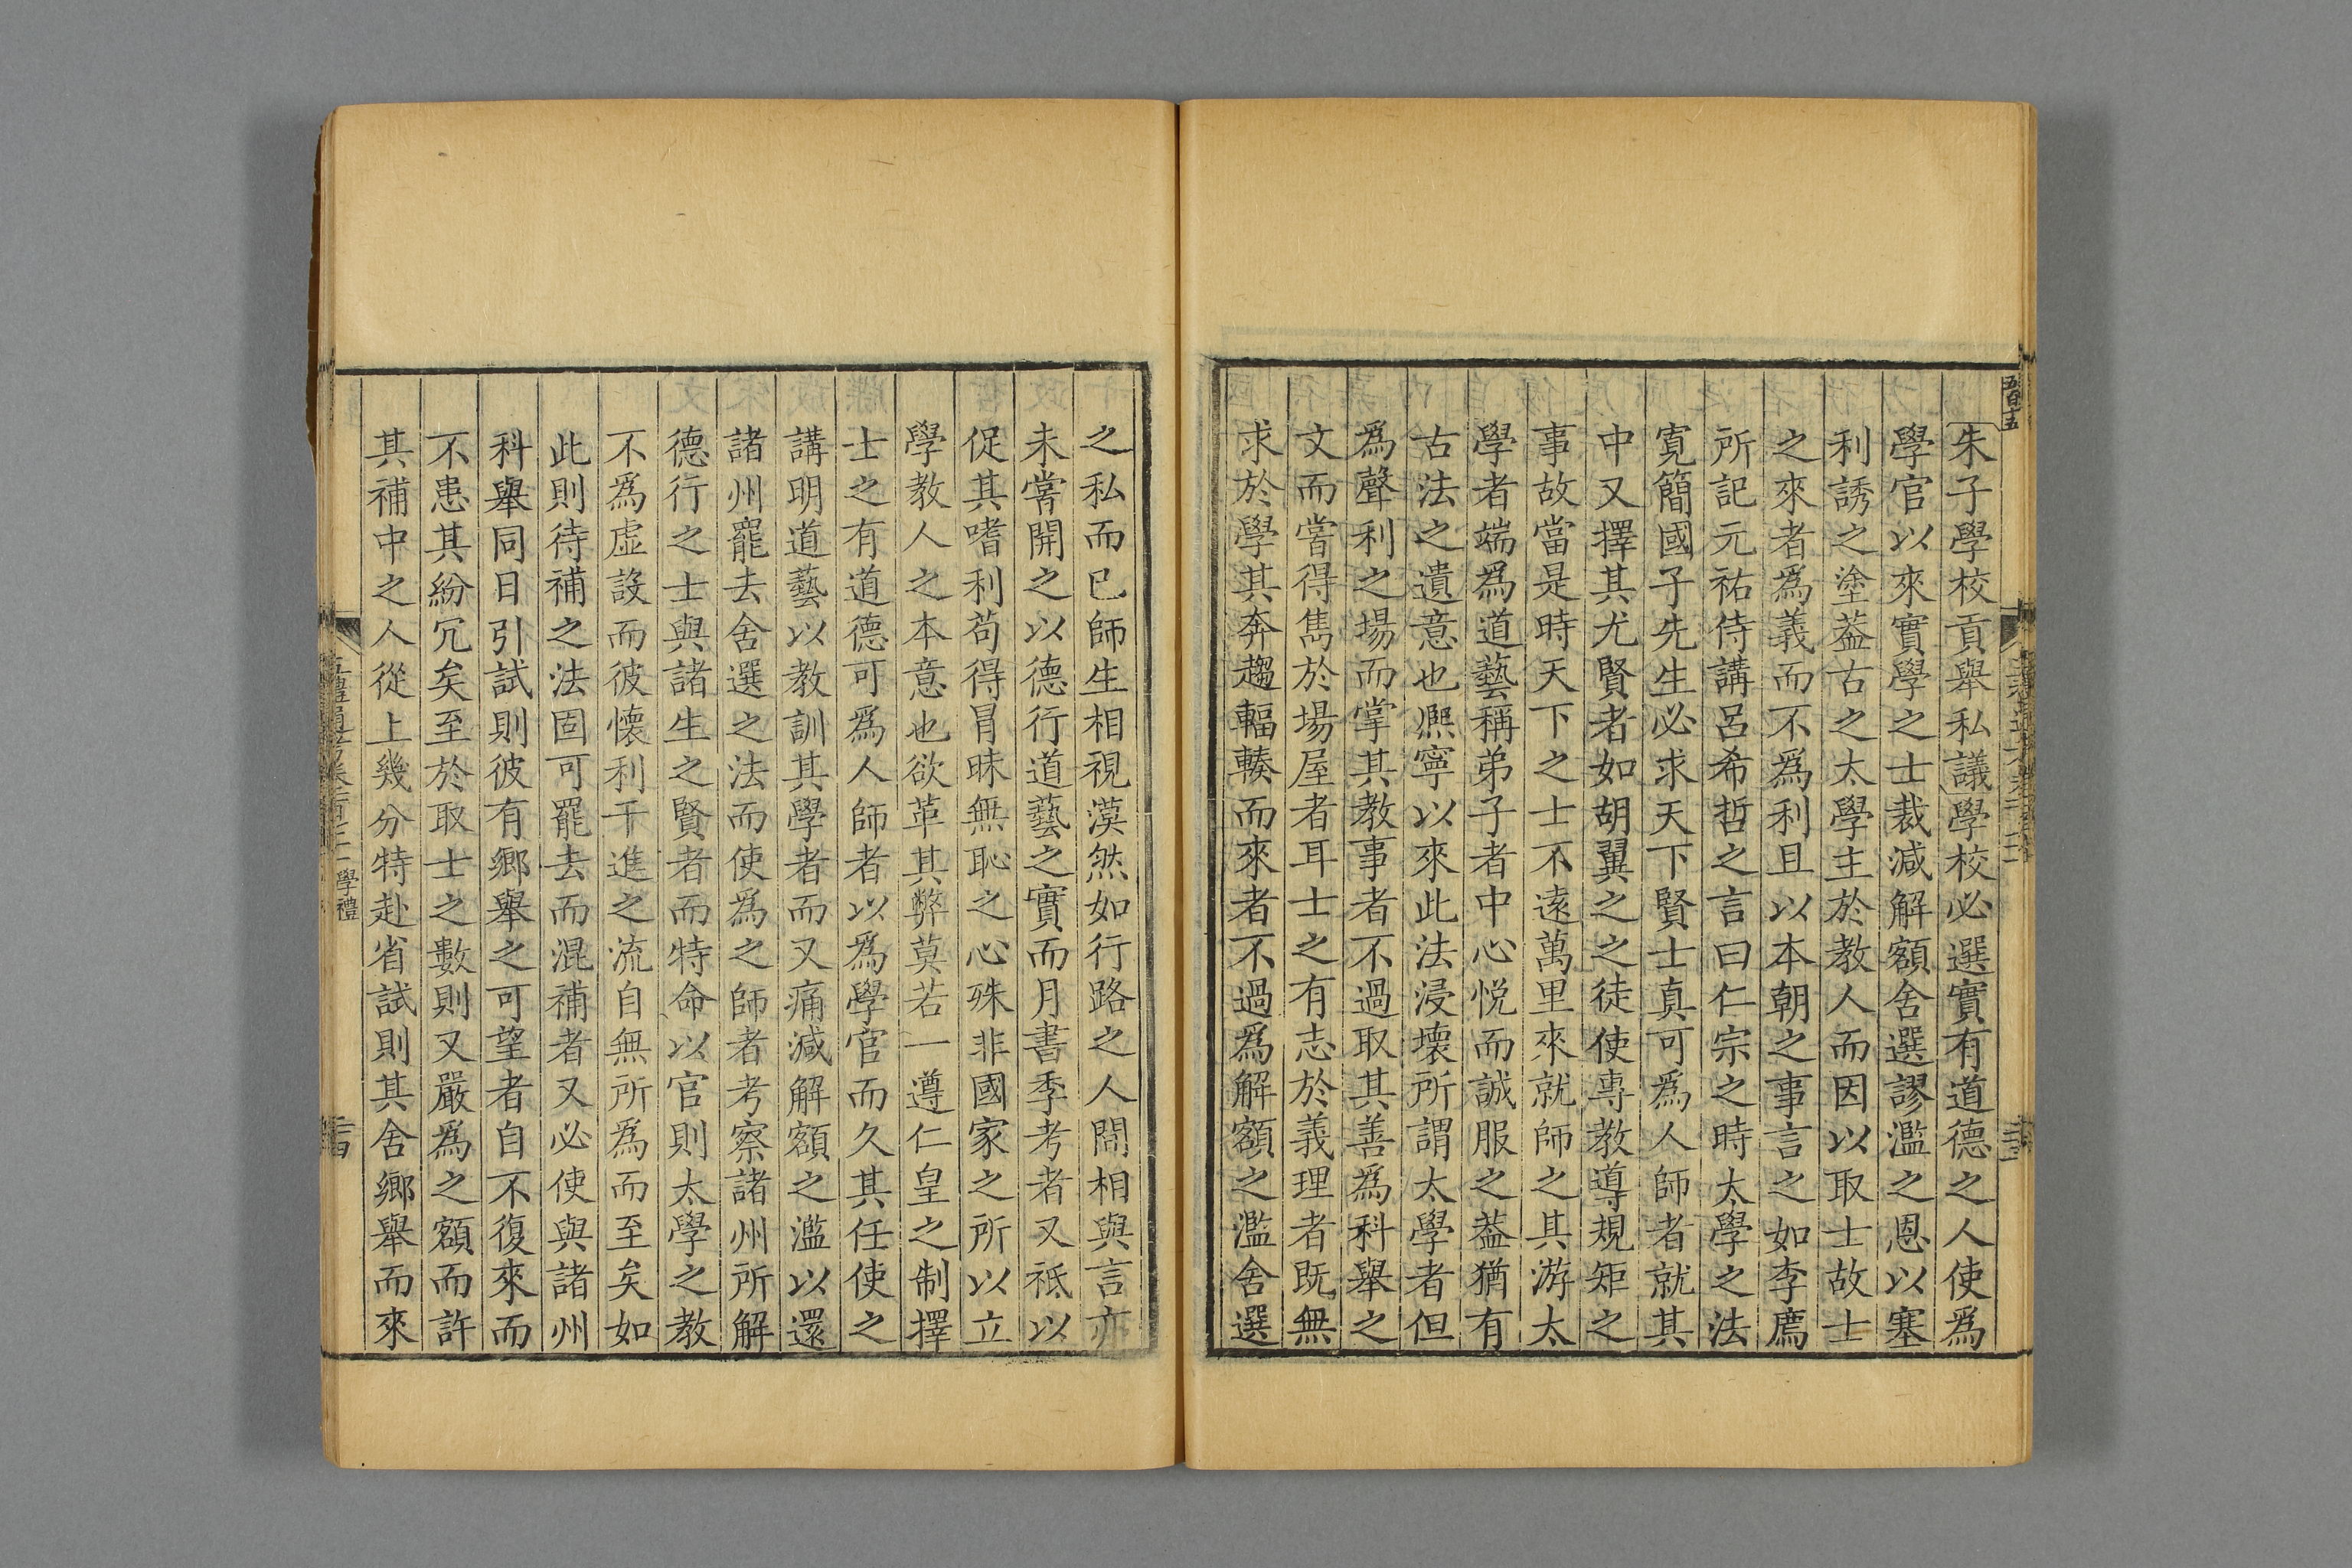 朱子學校貢舉私議學校必選實有道德之人使爲
學官以來實學之士裁減解額舍選謬濫之恩以塞
利誘之塗葢古之太學主於教人而因以取士故士
之來者爲義而不爲利且以本朝之事言之如李廌
所記元祐侍講呂希哲之言曰仁宗之時太學之法
寛簡國子先生必求天下賢士真可爲人師者就其
中又擇其尤賢者如胡翼之之徒使專教導規矩之
事故當是時天下之士不遠萬里來就師之其游太
學者端爲道藝稱弟子者中心悅而誠服之葢猶有
古法之遺意也熈寧以來此法浸壞所謂太學者但
爲聲利之場而掌其教事者不過取其善爲科舉之
文而嘗得雋於場屋者耳士之有志於義理者既無
求於學其奔趨輻輳而來者不過爲解額之濫舍選
之私而已師生相視漠然如行路之人間相與言亦
未嘗開之以德行道藝之實而月書季考者又祗以
促其嗜利苟得冒昧無恥之心殊非國家之所以立
學教人之本意也欲革其弊莫若一遵仁皇之制擇
士之有道德可爲人師者以爲學官而久其任使之
講明道藝以教訓其學者而又痛減解額之濫以還
諸州罷去舍選之法而使爲之師者考察諸州所解
德行之士與諸生之賢者而特命以官則太學之教
不爲虛設而彼懷利干進之流自無所爲而至矣如
此則待補之法固可罷去而混補者又必使與諸州
科舉同日引試則彼有鄉舉之可望者自不復來而
不患其紛冗矣至於取士之數則又嚴爲之額而許
其補中之人從上幾分特赴省試則其舍鄉舉而來
學禮